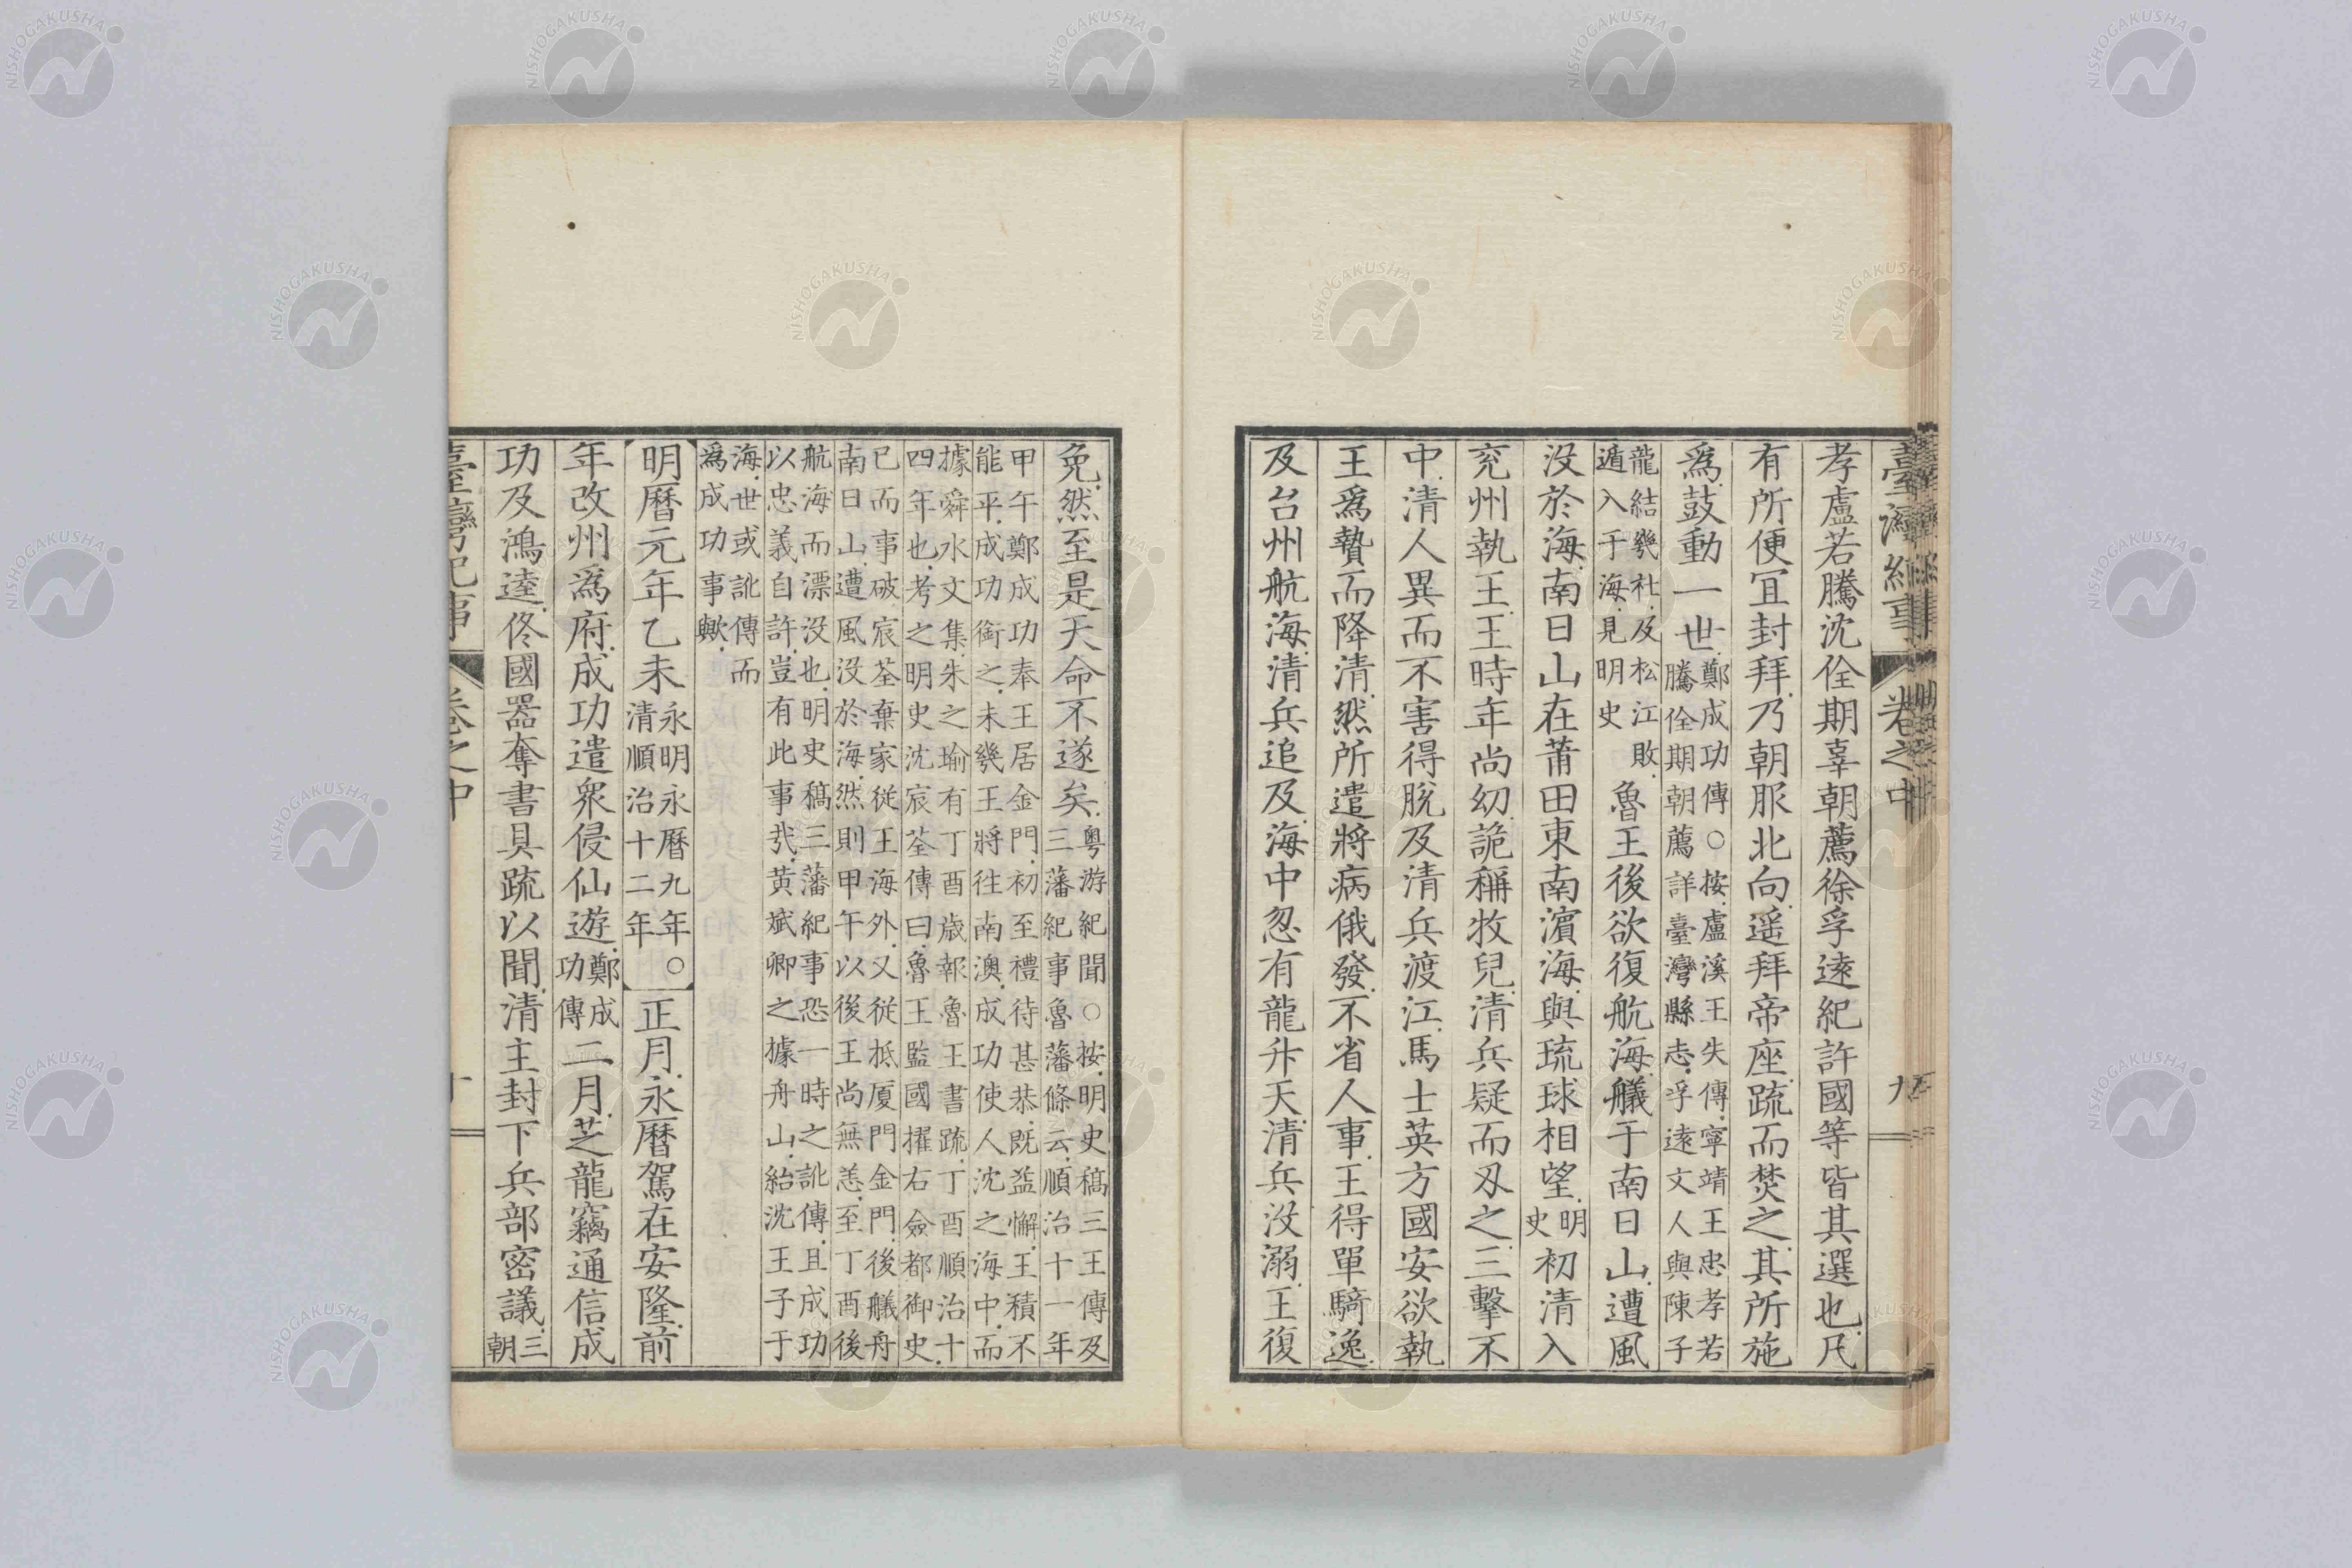 臺灣紀事 卷之中 九
孝盧若騰沈佺期辜朝薦徐孚遠紀許國等皆其選也.凡
有所便冝封拜.乃朝服北向.遥拜帝座.疏而焚之.其所施
爲.鼓動一世.
鄭成功傳○按.盧溪王失傳.寧靖王忠孝若
騰佺期朝薦詳臺灣縣志.孚遠文人與陳子
龍結幾社.及松江敗.
遁入于海.見明史
魯王後欲復航海.艤于南日山.遭風
没於海.南日山在莆田東南濵海.與琉球相望.
明
史
初清入
兖州執王.王時年尚幼.詭稱牧兒.清兵疑而刄之.三擊不
中.清人異而不害得脱.及清兵渡江.馬士英方國安欲執
王爲贄而降清.然所遣將病俄發.不省人事.王得單騎逸.
及台州航海.清兵追及.海中忽有龍升天.清兵没溺.王復
免.然至是天命不遂矣.
粤游紀聞○按.明史稿三王傳及
三藩紀事魯藩條云.順治十一年
甲午鄭成功奉王居金門.初至禮待甚恭.既益懈.王積不
能平.成功銜之.未幾王將往南澳.成功使人沈之海中.而
據舜水文集.朱之瑜有丁酉歳報魯王書疏.丁酉順治十
四年也.考之明史沈宸荃傳曰.魯王監國擢右僉都御史.
已而事破宸荃棄家従王海外.又従抵厦門金門.後艤舟
南日山.遭風没於海.然則甲午以後王尚無恙.至丁酉後
航海而漂没也.明史稿三藩紀事恐一時之訛傳.且成功
以忠義自許.豈有此事哉.黄斌卿之據舟山.紿沈王子于
海.世或訛傳而
爲成功事歟.
明曆元年乙未
永明永曆九年○
清順治十二年
正月.永曆駕在安隆.前
年改州爲府.成功遣衆侵仙遊.
鄭成
功傳
二月.芝龍竊通信成
功及鴻逵.佟國器奪書具疏以聞.清主封下兵部密議.
三
朝
臺灣紀事 卷之中 十
NISHOGAKUSHA